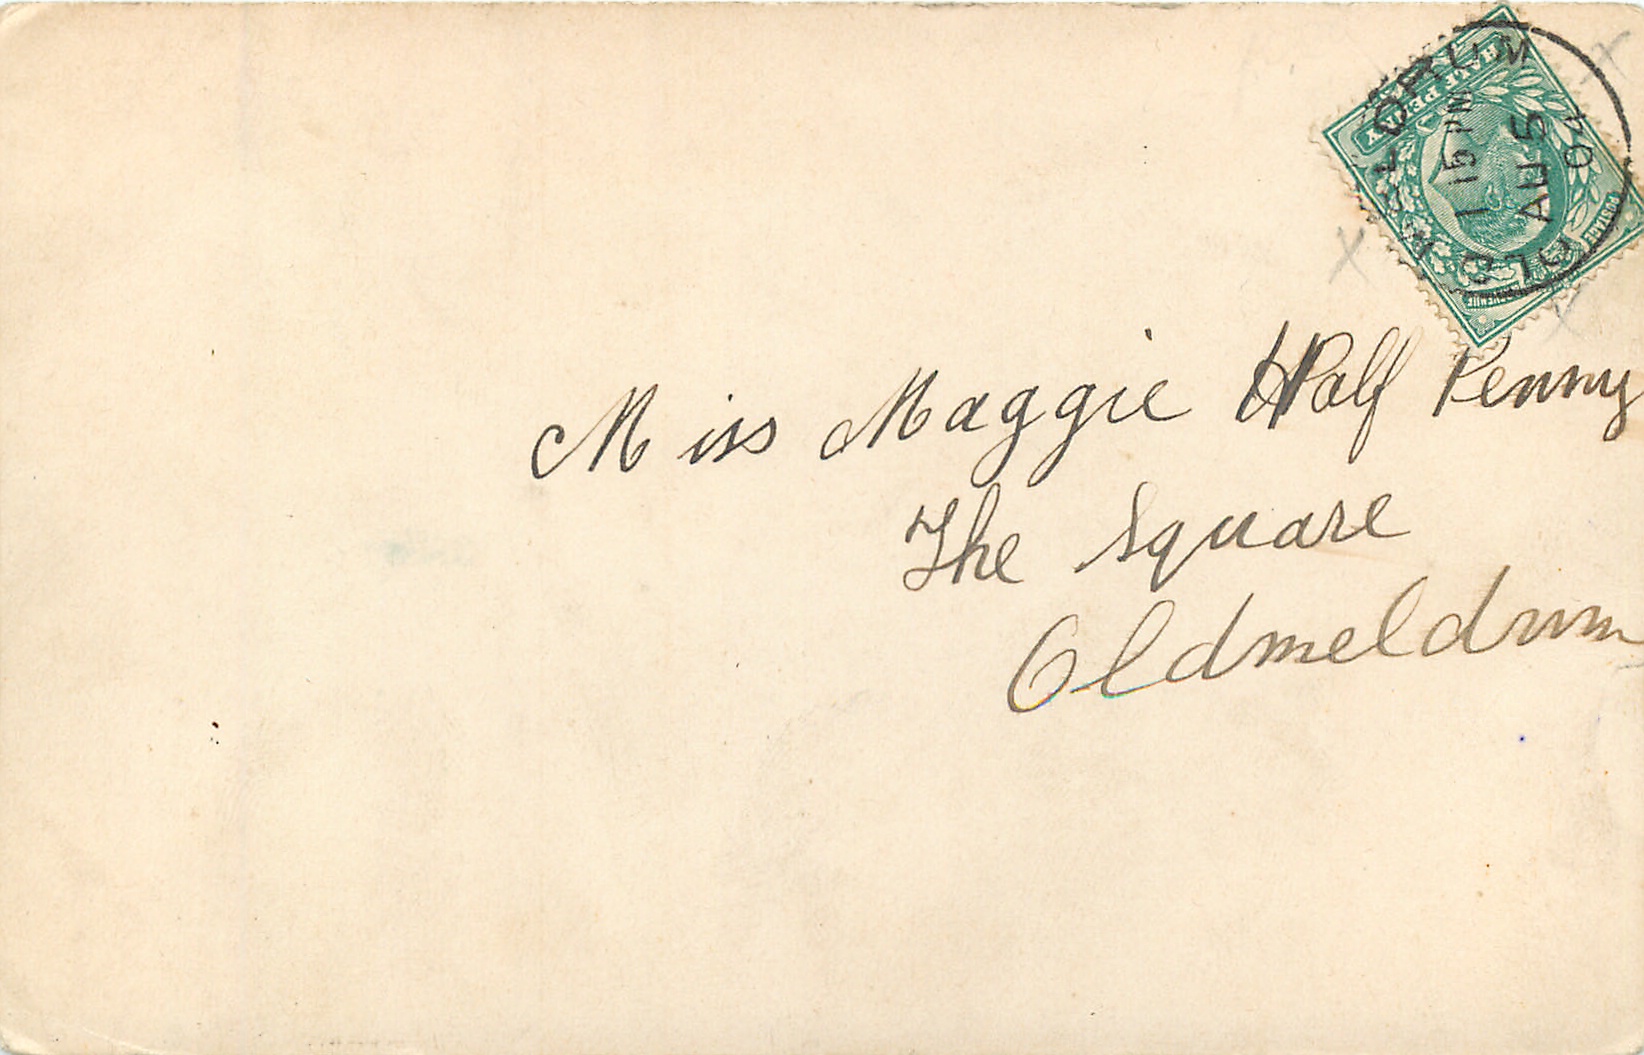 HALF PENNY
POSTAGE
REVENUE
OLD MELDRUM
1 15 PM
AU 5
04
Miss Maggie Half Penny
The Square
Oldmeldrum